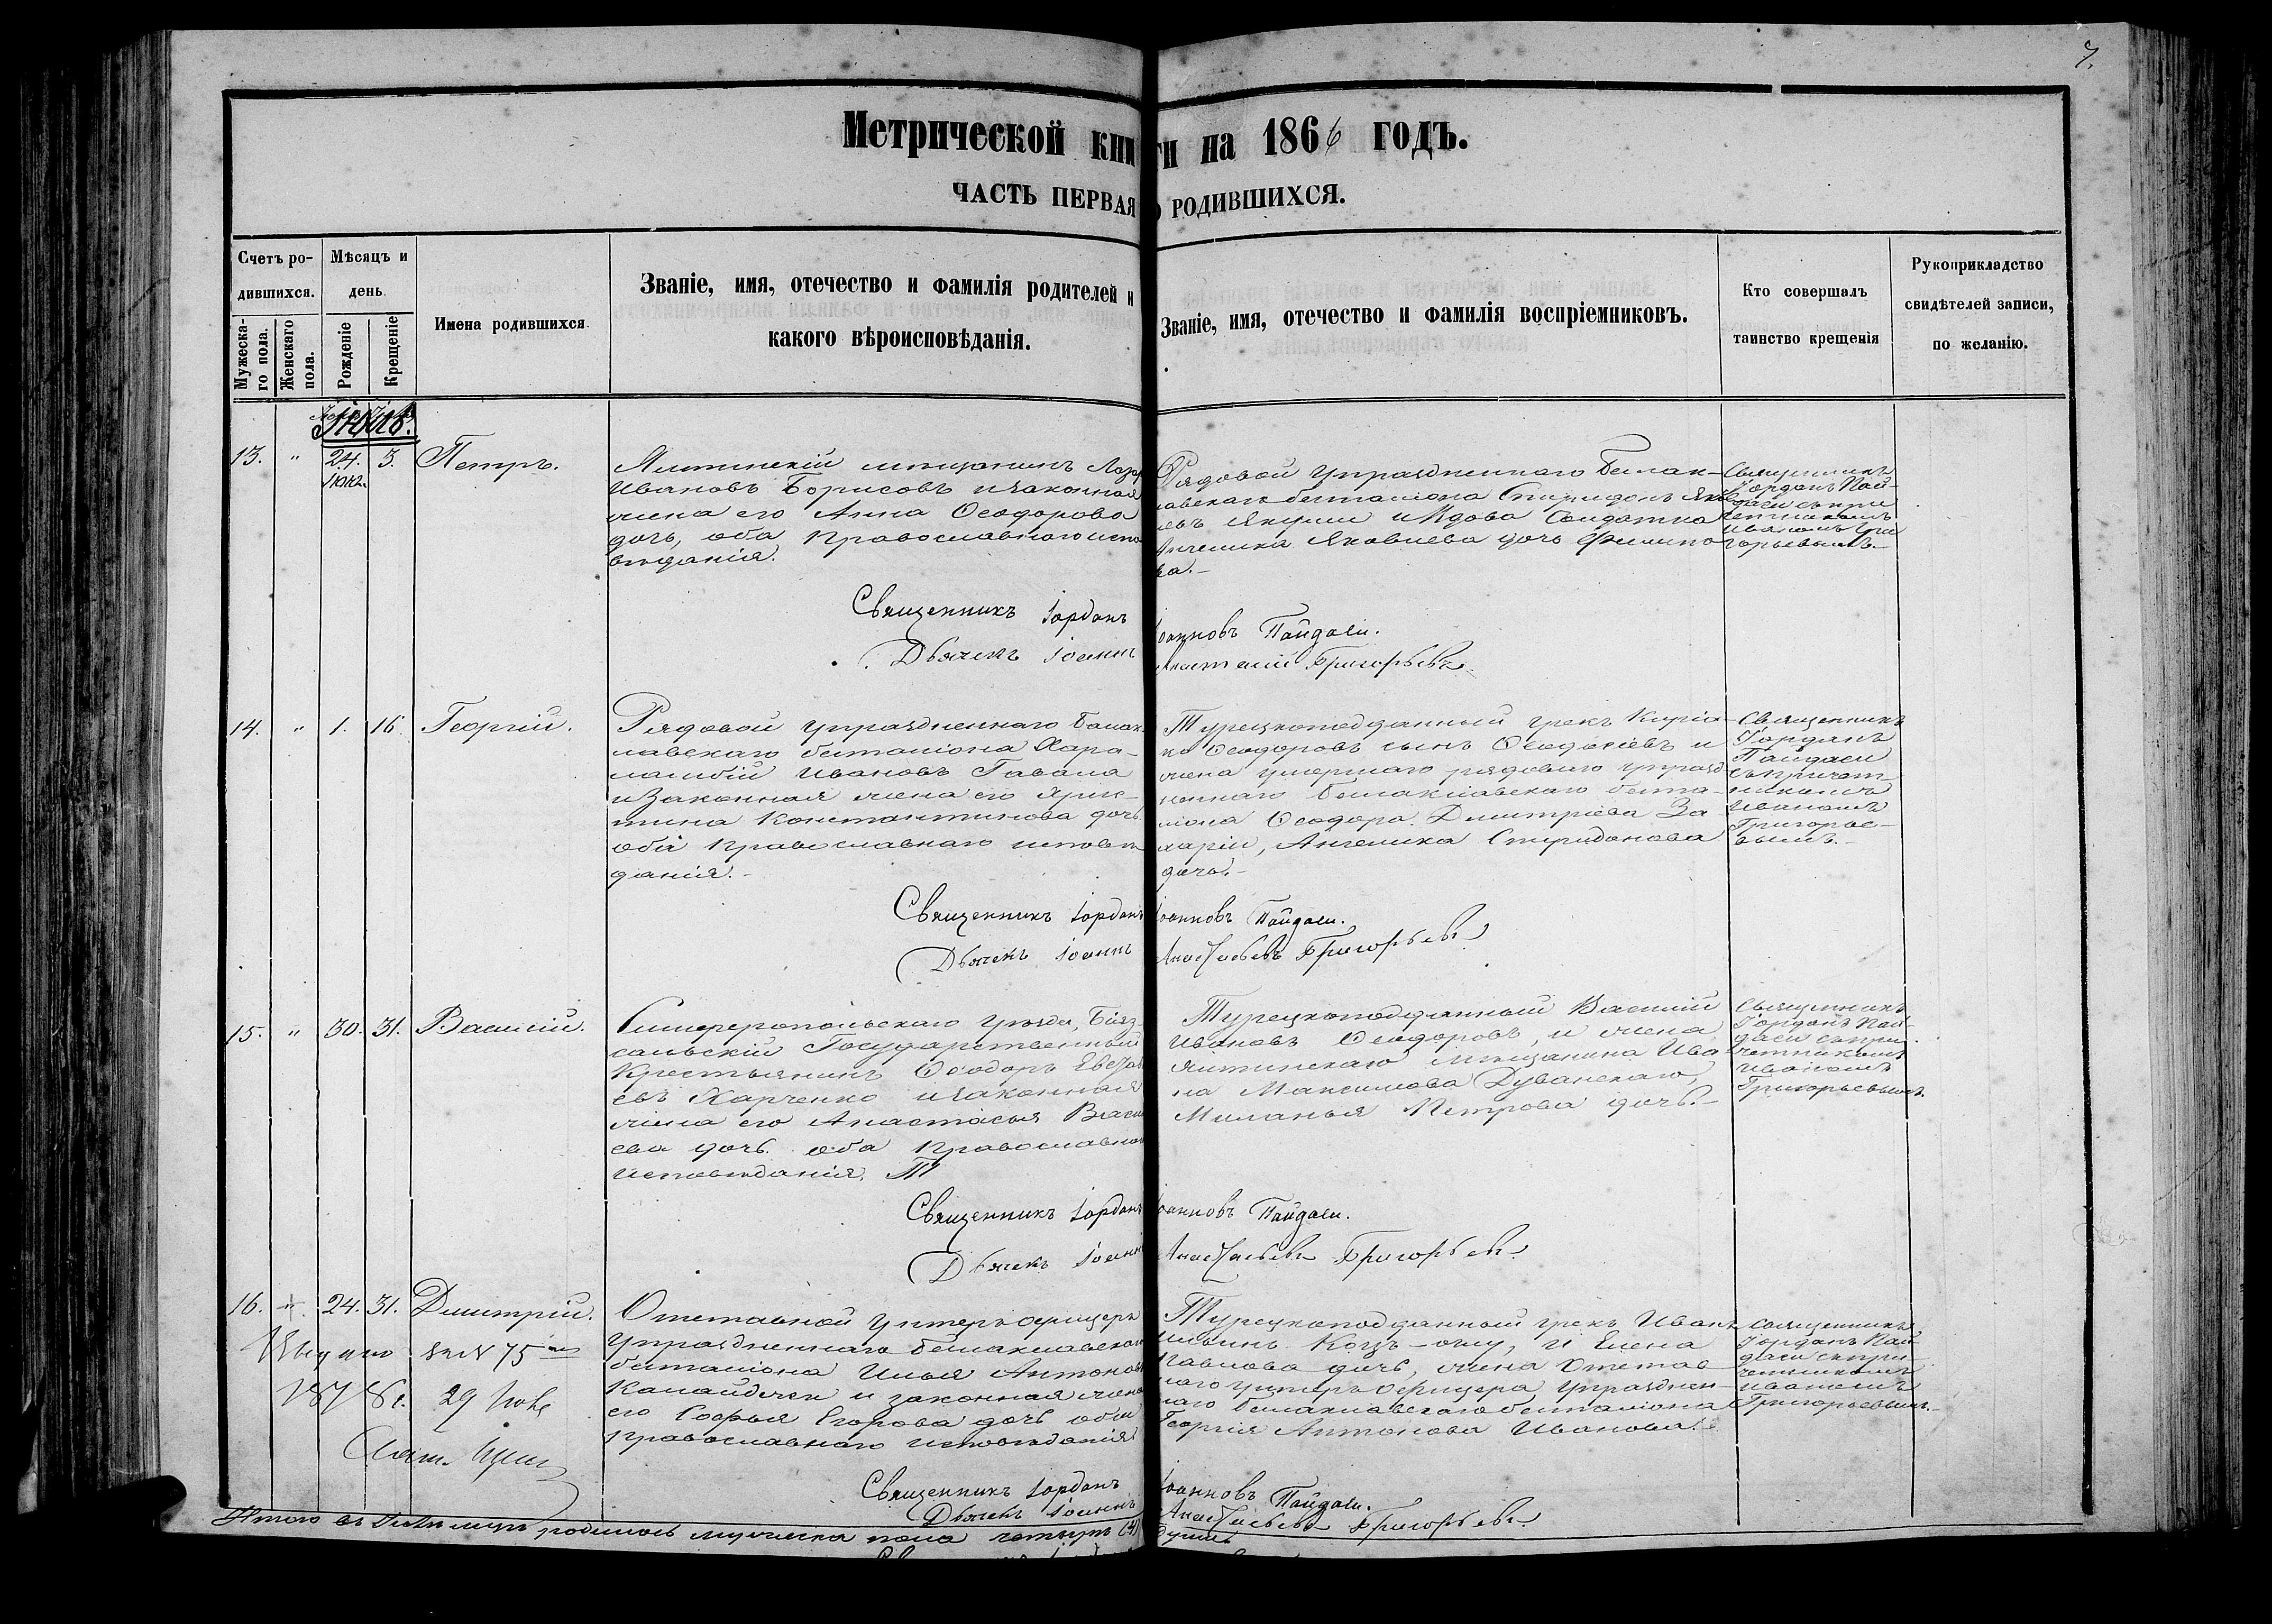 7.
Метрической книги на 1866 годъ.
ЧАСТЬ ПЕРВАЯ О РОДИВШИХСЯ.
Счетъ ро-
дившихся.
Мужеска-
го пола.
Женскаго
пола.
Мѣсяцъ и
день.
Рожденіе
Крещеніе
Имена родившихся.
Званіе, имя, отечество и фамилія родителей и
какого вѣроисповѣданія.
Званіе, имя, отечество и фамилія воспріемниковъ.
Кто совершалъ
таинство крещенія
Рукоприкладство
свидѣтелей записи,
по желанію.
Іюль.
13. " 24. 3. Петръ.
Іюня.
Ялтинскій мѣщанинъ Лазар
Ивановъ Борисовъ и законная
жена его Анна Ѳеодорова
дочь, оба православнаго испо
вѣданія.
Рядовой упраздненнаго Балак-
лавскаго баталіона Спиридонъ Яков
евъ и вдова Солдатка
Анжелика Яковлева дочь Филипо
ва.-
Священникъ
Іорданъ Пай-
даси съ при
четникомъ
Иваномъ Гри
горьевымъ.-
Священникъ Іорданъ Іоанновъ Пайдаси.
Дьячекъ Іоаннъ Анастасіи Григорьевъ
14. " 1. 16. Георгій.
Рядовой упраздненнаго Балак-
лавскаго баталіона Хара-
лампій Ивановъ Гавала
и законная жена его Хрис-
тина Константинова дочь
оба православнаго исповѣ-
данія.-
Турецкоподданный грекъ Киріа-
ко Ѳеодоровъ сынъ Ѳеодосіевъ и
жена умершаго рядоваго упразд-
неннаго Балаклавскаго бата-
ліона Ѳеодора Дмитріева За-
харіи, Анжелика Спиридонова
дочь.-
Священникъ
Іорданъ
Пайдаси
съ причет-
никомъ
Иваномъ
Григорье-
вымъ.-
Священникъ Іорданъ Іоанновъ Пайдаси.
Дьячекъ Іоаннъ Анастасьевъ Григорьевъ
15. " 30. 31. Василій.
Симферопольскаго уѣзда, Біяз-
сальскій Государственный
Крестьянинъ Ѳеодоръ
евъ Харченко и законная
жена его Анастасья Васи
ева дочь оба православнаго
исповѣданія.
Турецкоподданный Василій
Ивановъ Ѳеодоровъ, и жена
Ялтинскаго мѣщанина Ива
на Максимова Дуванскаго,
Миланья Петрова дочь.-
Священникъ
Іорданъ Пай-
даси съ при-
четникомъ
Иваномъ
Григорьевымъ.
Священникъ Іорданъ Іоанновъ Пайдаси.
Дьячекъ Іоаннъ Анастасьевъ Григорьевъ
16. " 24. 31. Дмитрій.
Выдано за № 75
187 г. 29
Отставной унтеръ офицеръ
упраздненнаго балаклавскаго
баталіона Илья Антоновъ
и законная жена
его Софья Егорова дочь оба
православнаго исповѣданія
Турецкоподданный грекъ Иванъ
и Елена
Павлова дочь, жена Отстав-
наго унтеръ офицера упразднен-
наго Балаклавскаго баталіона
Георгія Антонова Иванова.-
Священникъ
Іорданъ Пай-
даси съ при-
четникомъ
Иваномъ
Григорьевымъ.-
Священникъ Іорданъ Іоанновъ Пайдаси.
Дьячекъ Іоаннъ Анастасьевъ Григорьевъ
Итого въ Іюлѣ мѣсяцѣ родилось мужеска пола четыре (4) души